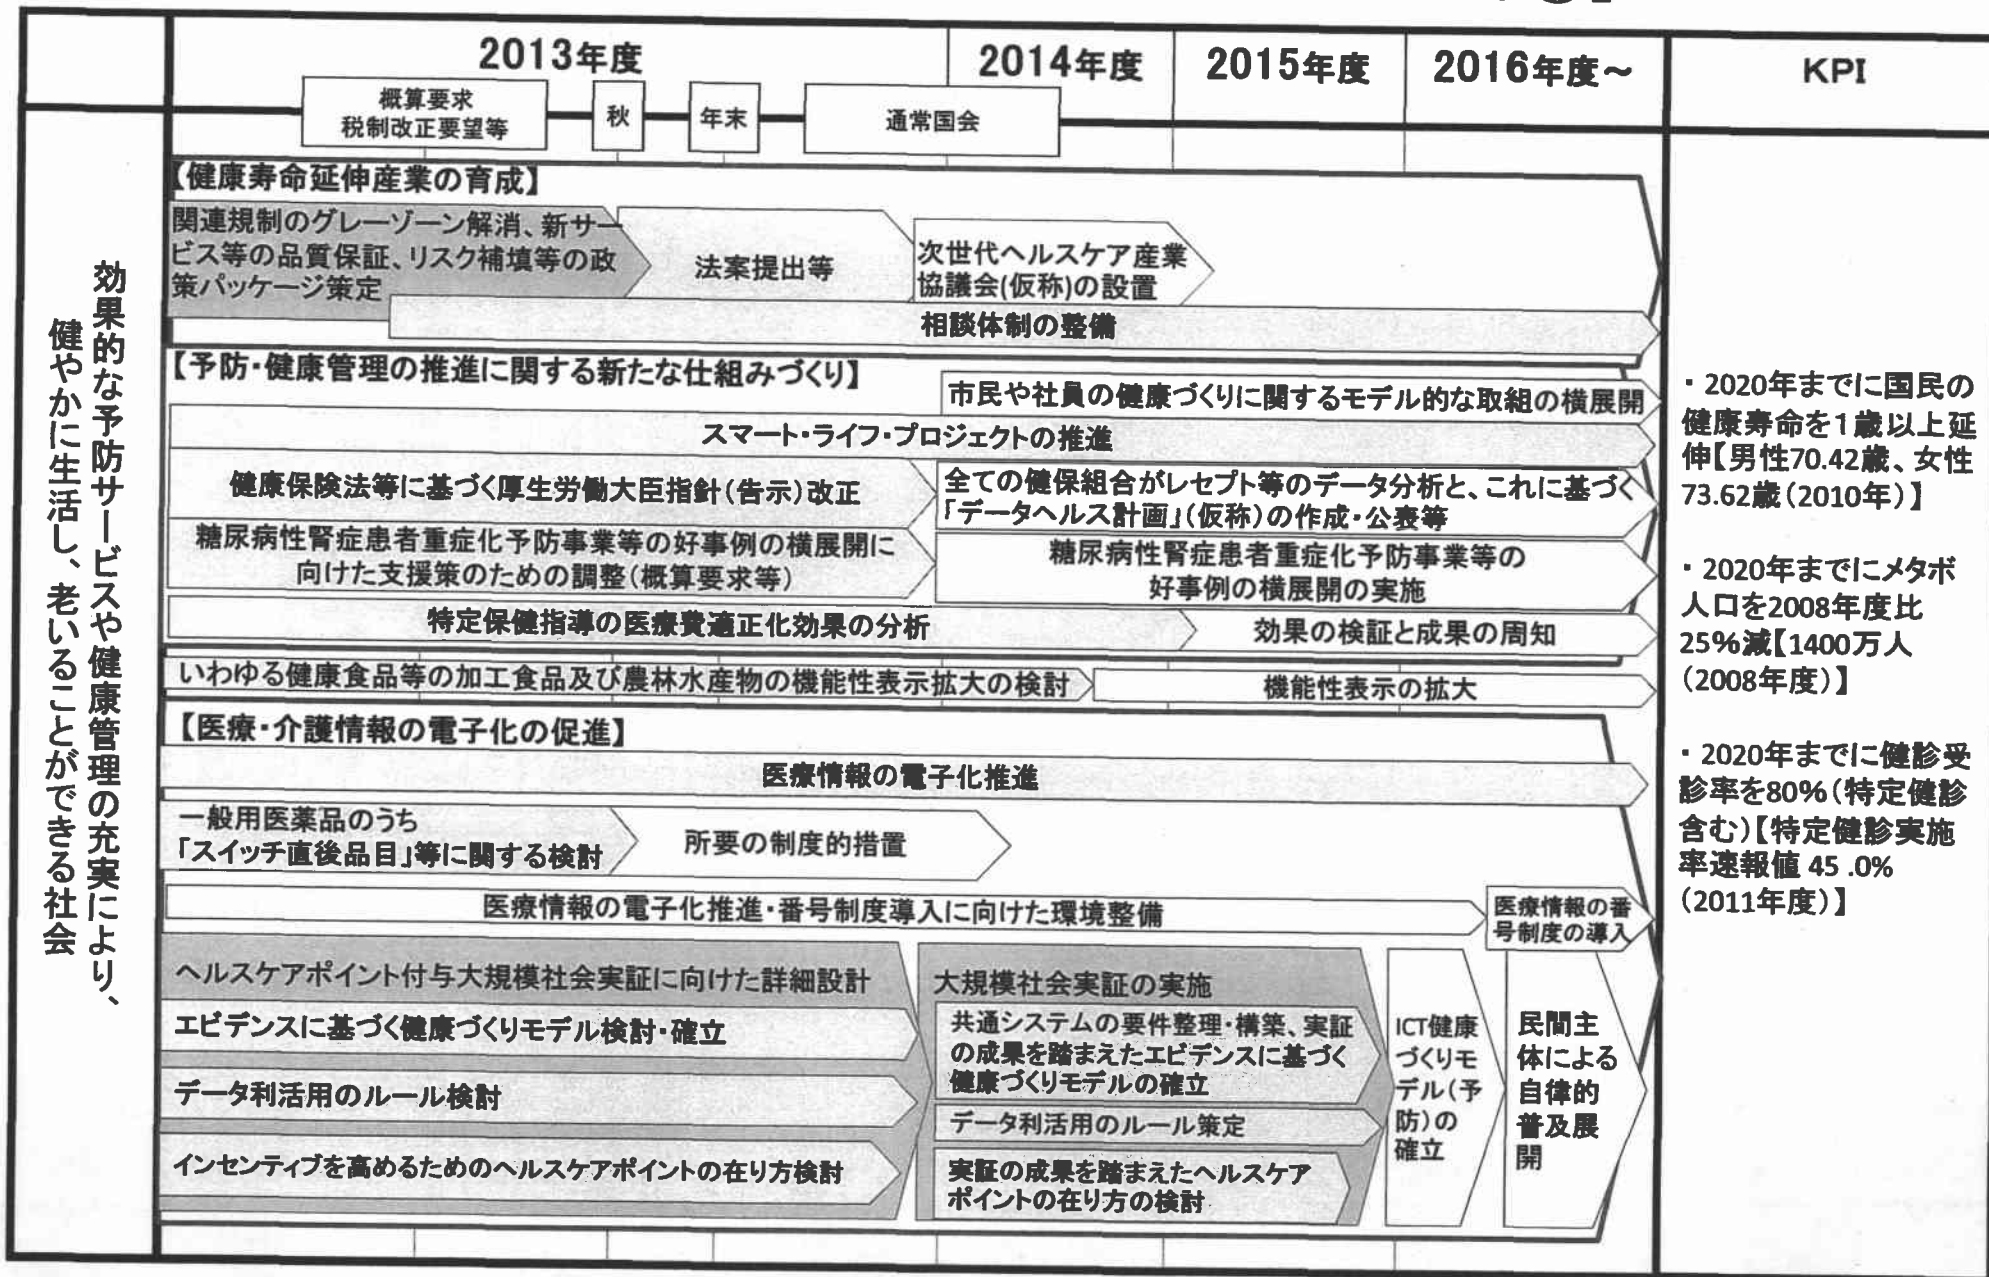 2013年度
2014年度
2015年度
2016年度～
KPI
概算要求
税制改正要望等
秋
年末
通常国会
効果的な予防サービスや健康管理の充実により、
健やかに生活し、老いることができる社会
【健康寿命延伸産業の育成】
関連規制のグレーゾーン解消、新サー
ビス等の品質保証、リスク補填等の政
策パッケージ策定
法案提出等
次世代ヘルスケア産業
協議会(仮称)の設置
相談体制の整備
【予防・健康管理の推進に関する新たな仕組みづくり】
市民や社員の健康づくりに関するモデル的な取組の横展開
スマート・ライフ・プロジェクトの推進
健康保険法等に基づく厚生労働大臣指針(告示)改正
全ての健保組合がレセプト等のデータ分析と、これに基づく
「データヘルス計画」(仮称)の作成・公表等
糖尿病性腎症患者重症化予防事業等の好事例の横展開に
向けた支援策のための調整(概算要求等)
糖尿病性腎症患者重症化予防事業等の
好事例の横展開の実施
特定保健指導の医療費適正化効果の分析
効果の検証と成果の周知
いわゆる健康食品等の加工食品及び農林水産物の機能性表示拡大の検討
機能性表示の拡大
【医療・介護情報の電子化の促進】
医療情報の電子化推進
一般用医薬品のうち
「スイッチ直後品目」等に関する検討
所要の制度的措置
医療情報の電子化推進・番号制度導入に向けた環境整備
医療情報の番
号制度の導入
ヘルスケアポイント付与大規模社会実証に向けた詳細設計
エビデンスに基づく健康づくりモデル検討・確立
データ利活用のルール検討
インセンティブを高めるためのヘルスケアポイントの在り方検討
大規模社会実証の実施
共通システムの要件整理・構築、実証
の成果を踏まえたエビデンスに基づく
健康づくりモデルの確立
データ利活用のルール策定
実証の成果を踏まえたヘルスケア
ポイントの在り方の検討
ICT健康
づくりモ
デル(予
防)の
確立
民間主
体による
自律的
普及展
開
・2020年までに国民の
健康寿命を1歳以上延
伸【男性70.42歳、女性
73.62歳(2010年)】
・2020年までにメタボ
人口を2008年度比
25%減【1400万人
(2008年度)】
・2020年までに健診受
診率を80%(特定健診
含む)【特定健診実施
率速報値 45 .0%
(2011年度)】